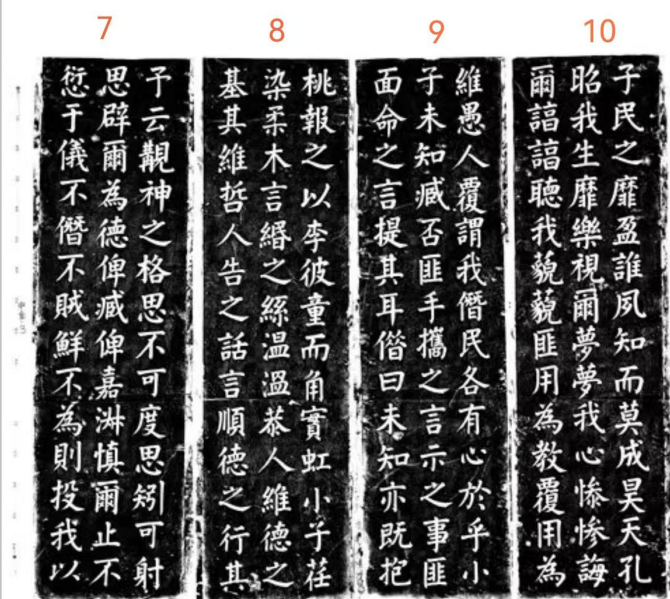 7
予云覯神之格思不可度思矧可射
思辟爾為德俾臧俾嘉淑慎爾止不
愆于儀不僭不賊鮮不為則投我以
8
桃報之以李彼童而角實虹小子荏
染柔木言緡之絲温温恭人維德之
基其維哲人告之話言順德之行其
9
維愚人覆謂我僭民各有心於乎小
子未知臧否匪手攜之言示之事匪
面命之言提其耳借曰未知亦既抱
10
子民之靡盈誰夙知而莫成昊天孔
昭我生靡樂視爾夢夢我心慘慘誨
爾諄諄聽我藐藐匪用為教覆用為